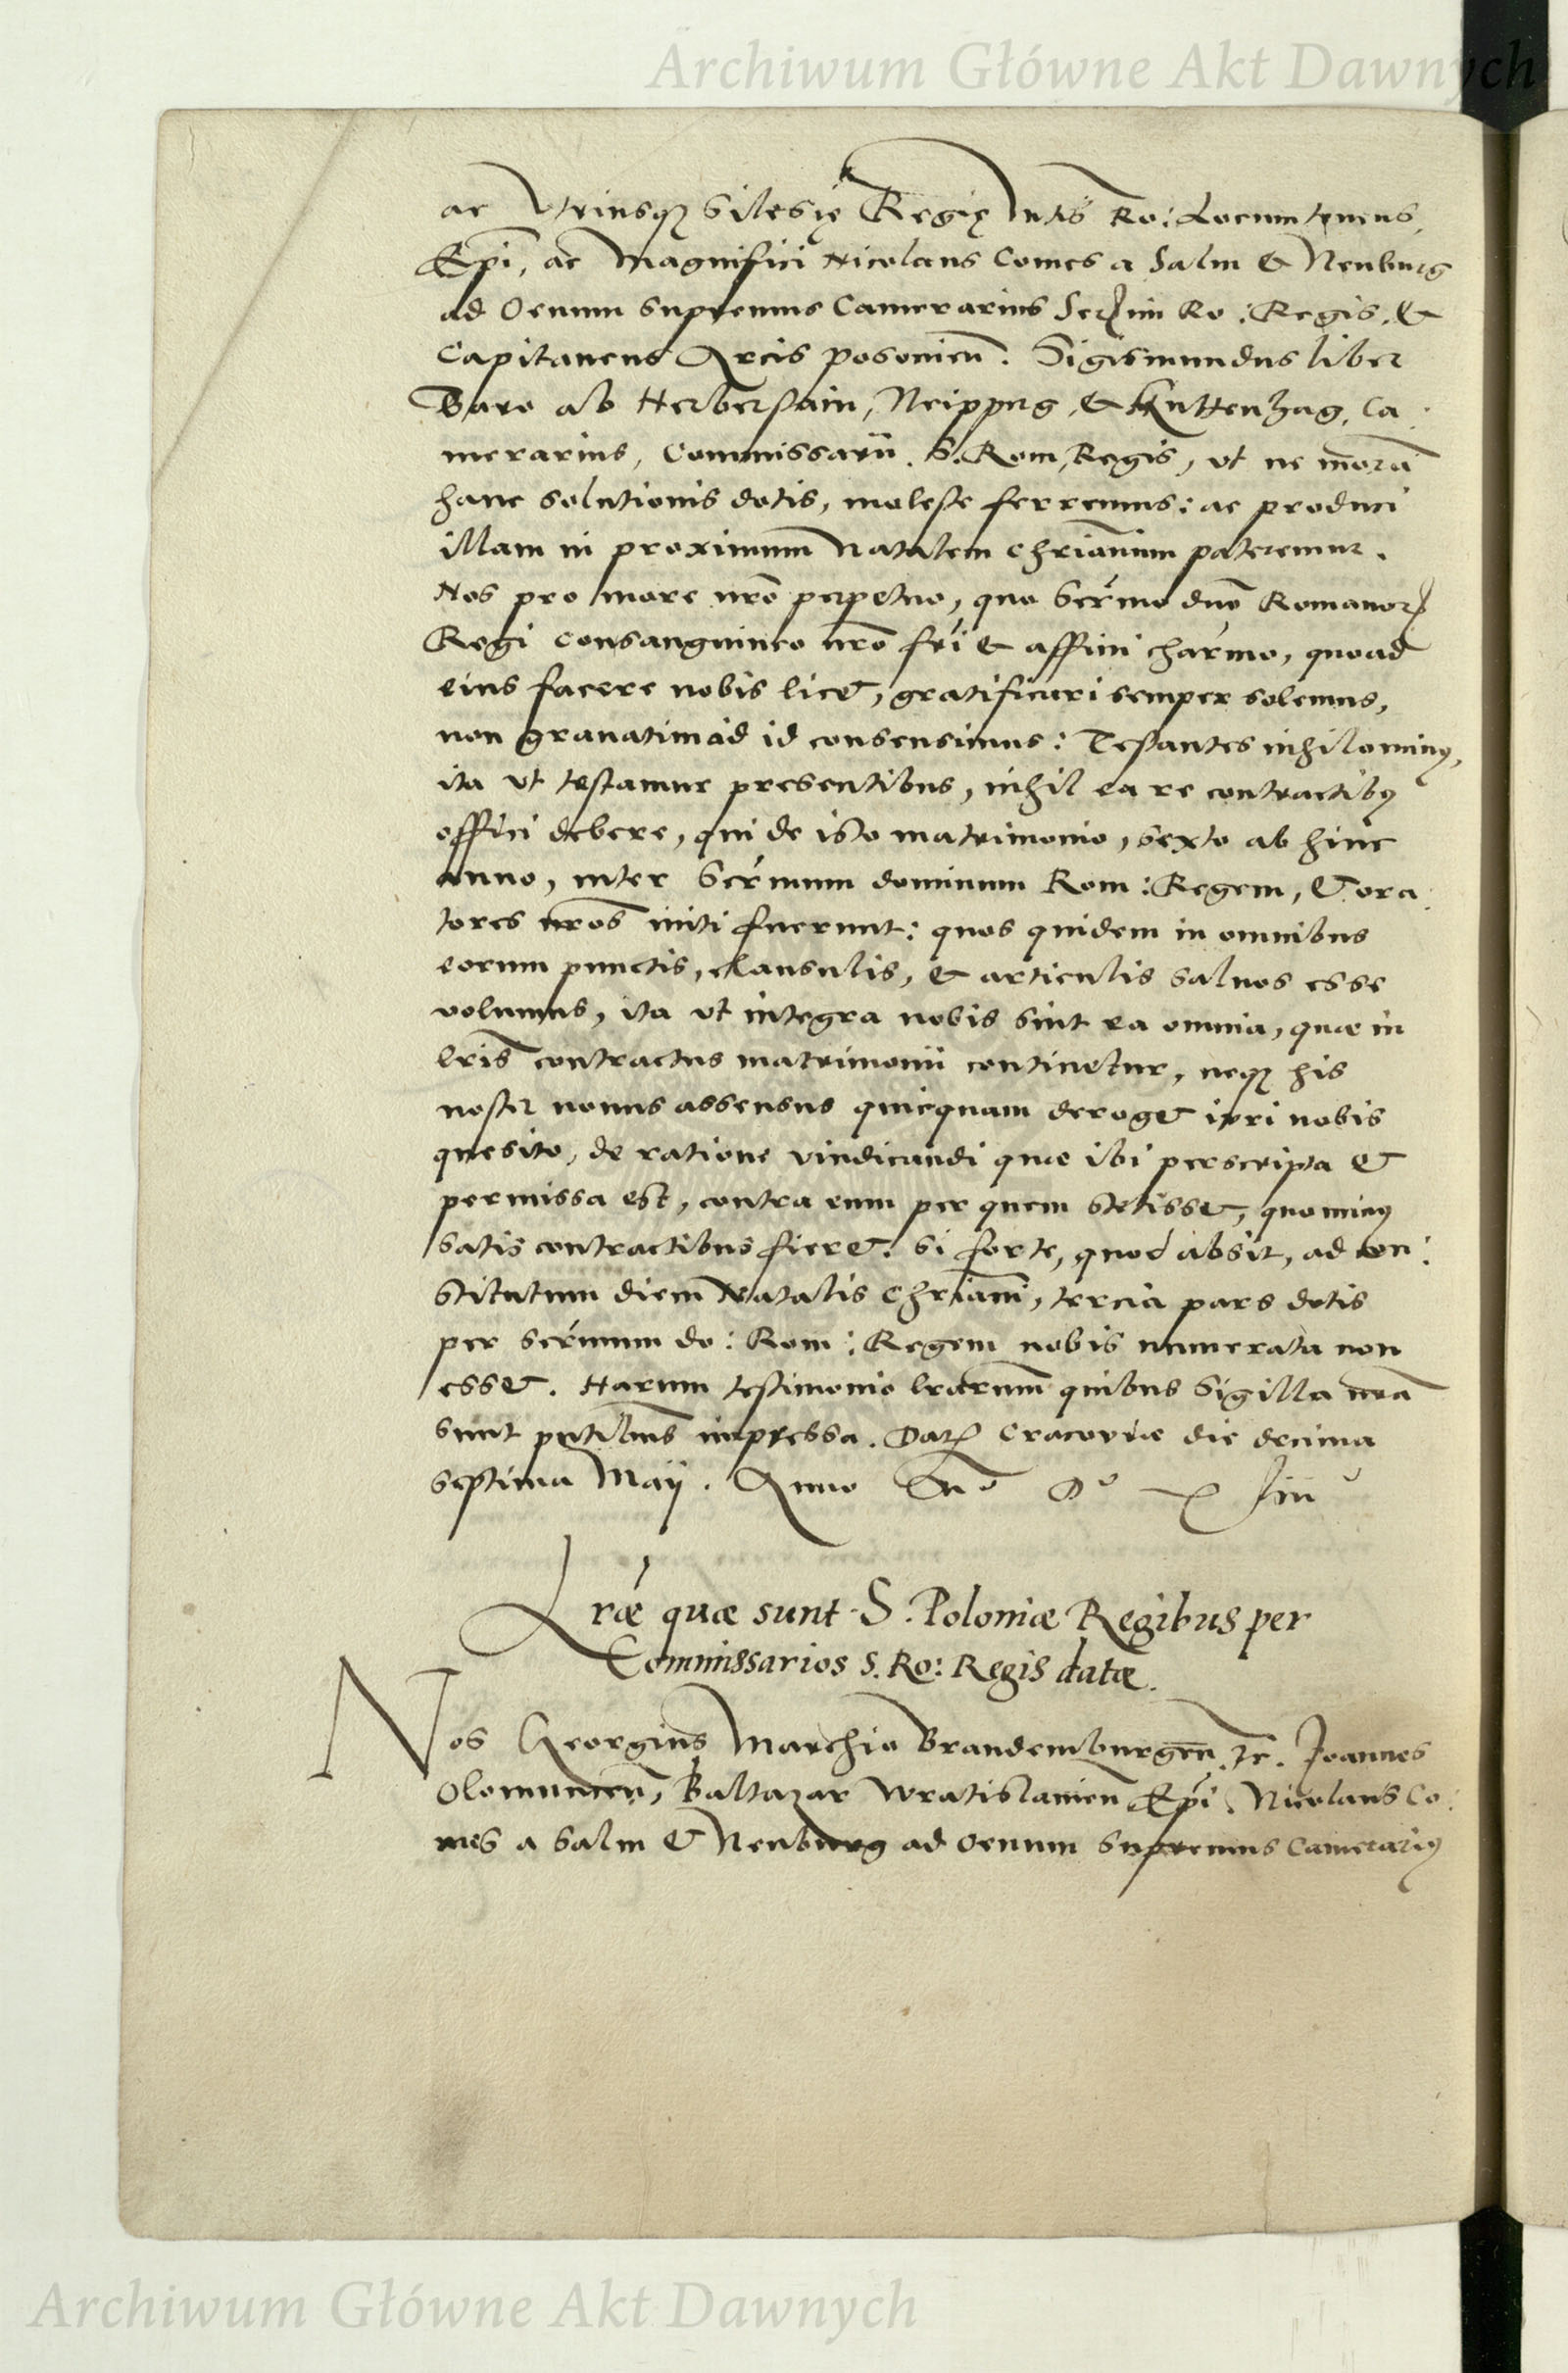 Archiwum Główne Akt Dawnych
ac vtriusqꝫ Silesię Regię Mtis Ro: Locumtenens,
Epi, ac Magnifici Nicolaus Comes a Salm & Neuburg
ad Oenum supremus Camerarius Serᵐⁱ Ro: Regis, &
Capitaneus Arcis posonien̄. Sigismundus liber
Baro ab Herberstain, Neipperg, & Guttenhag, Ca:
merarius, Commissarii S. Rom, Regis, vt ne morā
hanc solutionis dotis, moleste ferremus: ac produci
illam in proximum Natalem chrianum pateremur.
Nos pro more nrō perpetuo, quo Sermo dnō Romanoꝝ
Regi consanguineo nrō fri & affini charmo, quoad
eius facere nobis lic&, gratificari semper solemus,
non grauatim ad id consensimus: Testantes nihilominꝰ,
ita vt testamur presentibus, nihil ea re contractibꝰ
offici debere, qui de isto matrimonio, sexto ab hinc
anno, inter Sermum dominum Rom: Regem, & ora:
tores nros initi fuerunt: quos quidem in omnibus
eorum punctis, clausulis, & articulis saluos esse
volumus, ita vt integra nobis sint ea omnia, quæ in
lris contractus matrimonii continetur, neqꝫ his
noster nouus assensus quicquam derog& iuri nobis
quesito, de ratione vindicandi quæ ibi perscripta &
permissa est, contra eum per quem stetiss&, quominꝰ
satis contractibus fier&. Si forte, quod absit, ad con:
stitutum diem Natalis Chriani, tercia pars dotis
per sermum do: Rom: Regem nobis numerata non
ess&. Harum testimonio lrarum quibus Sigilla nra
sunt pntibus impressa. Datꝝ Cracoviæ die decima
septima Maij. Anno
Lræ quæ sunt S. Poloniæ Regibus per
Commissarios S. Ro: Regis datæ.
Nos Georgius Marchio Brandemburgen̄. ꝛc. Joannes
Olomuncen̄, Baltazar Wratislauien̄ Epi. Nicolaus Co:
mes a Salm & Neuburg ad Oenum Supremus Camerariꝰ
Archiwum Główne Akt Dawnych